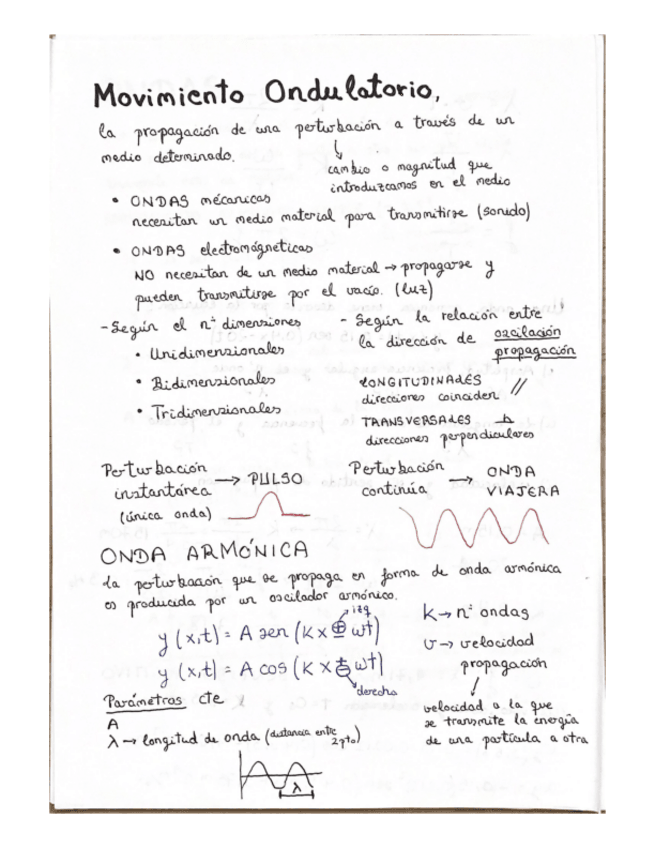 Movimiento Ondulatorio,
la propagación de una perturbación a través de un
medio determinado.
cambio o magnitud que
introduzcamos en el medio
• ONDAS mécanicas
necesitan un medio material para transmitirse (sonido)
• ONDAS electromágneticas
NO necesitan de un medio material → propagarse y
pueden transmitirse por el vacío. (luz)
- Según el nº dimensiones
• Unidimensionales
• Bidimensionales
• Tridimensionales
- Según la relación entre
la dirección de oscilación
propagación
LONGITUDINALES //
direcciones coinciden
TRANSVERSALES ⊥
direcciones perpendiculares
Perturbación
instantánea → PULSO
(única onda)
Perturbación
continúa → ONDA
VIAJERA
ONDA ARMÓNICA
la perturbación que se propaga en forma de onda armónica
es producida por un oscilador armónico.
izq
y (x,t) = A sen (K x ⊕ wt)
y (x,t) = A cos (K x ± wt)
derecha
K → nº ondas
v → velocidad
propagación
velocidad a la que
se transmite la energía
de una partícula a otra
Parámetros cte
A
λ → longitud de onda (distancia entre
2 pto)
λ